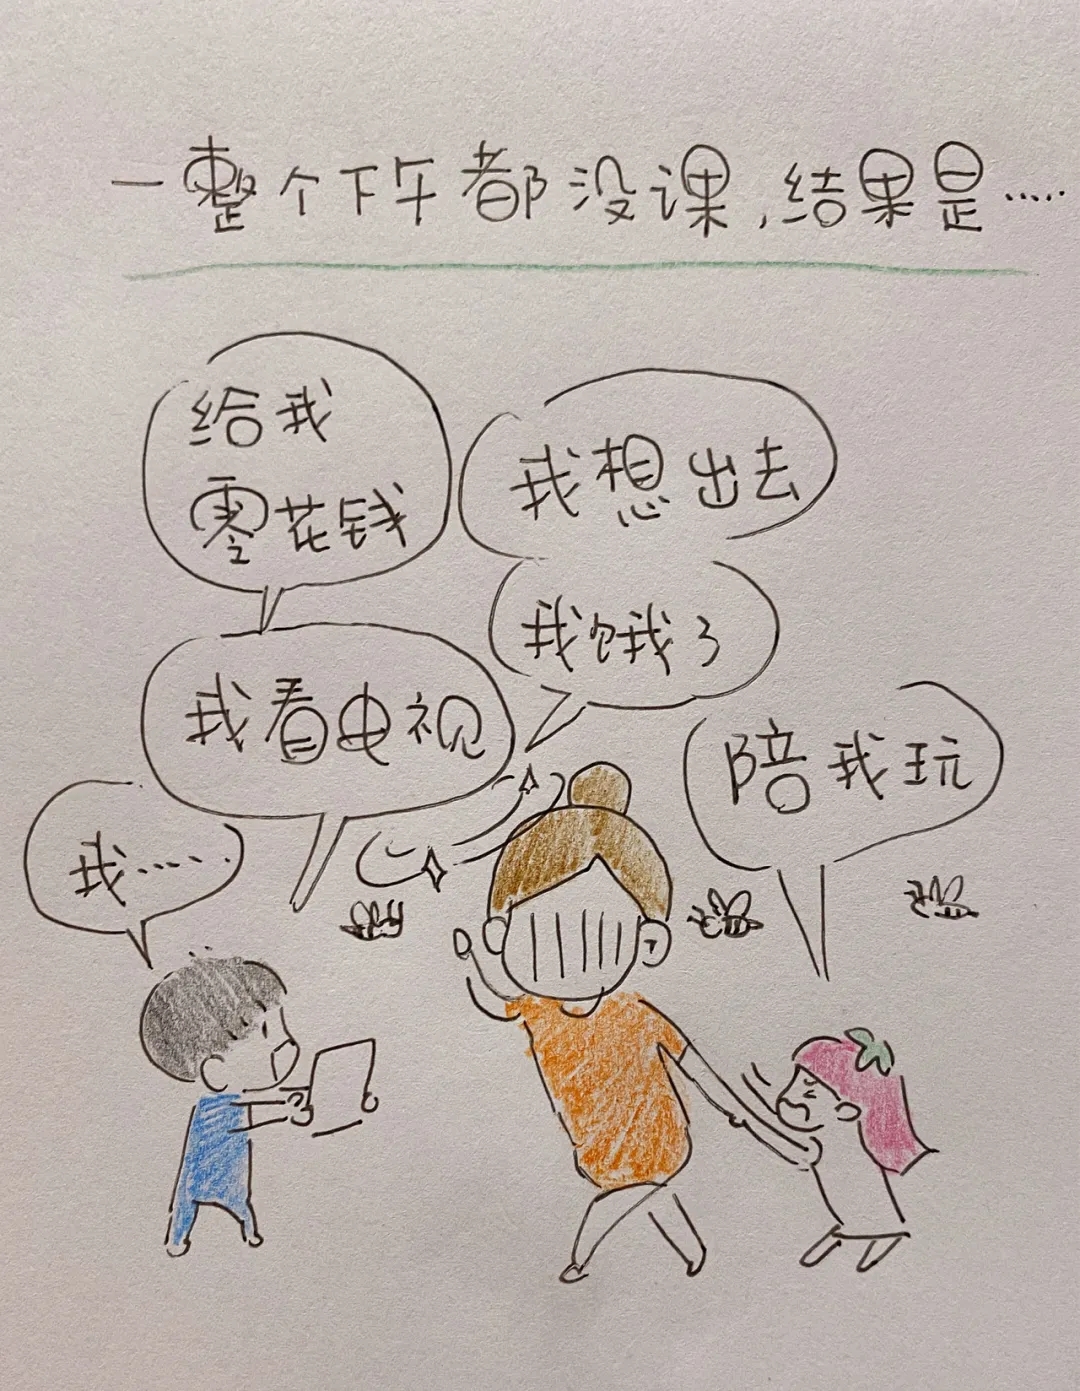 一整个下午都没课,结果是……
给我
零花钱
我想出去
我饿了
我看电视
陪我玩
我……